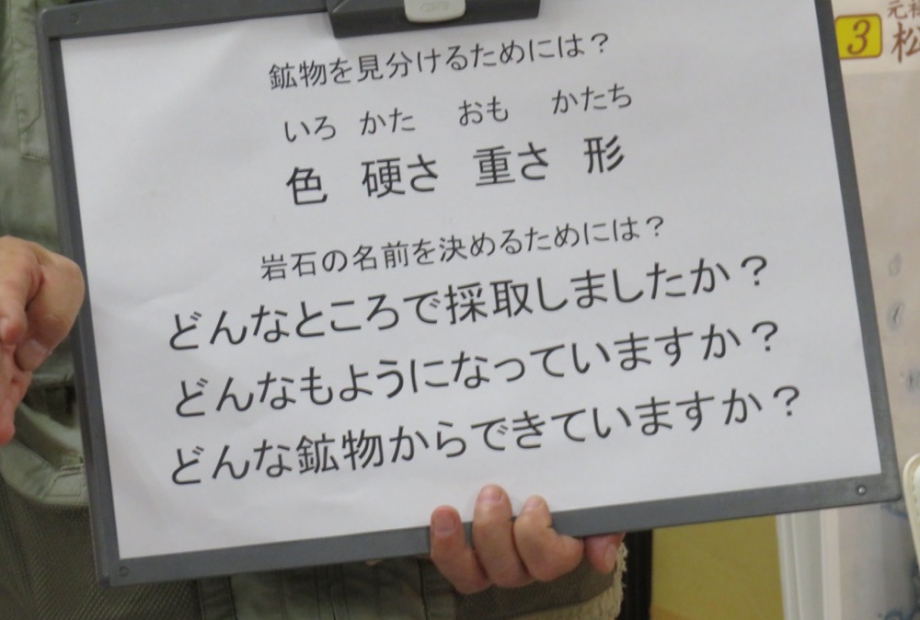 鉱物を見分けるためには？
いろ かた おも かたち
色 硬さ 重さ 形
岩石の名前を決めるためには？
どんなところで採取しましたか？
どんなもようになっていますか？
どんな鉱物からできていますか？
3
松